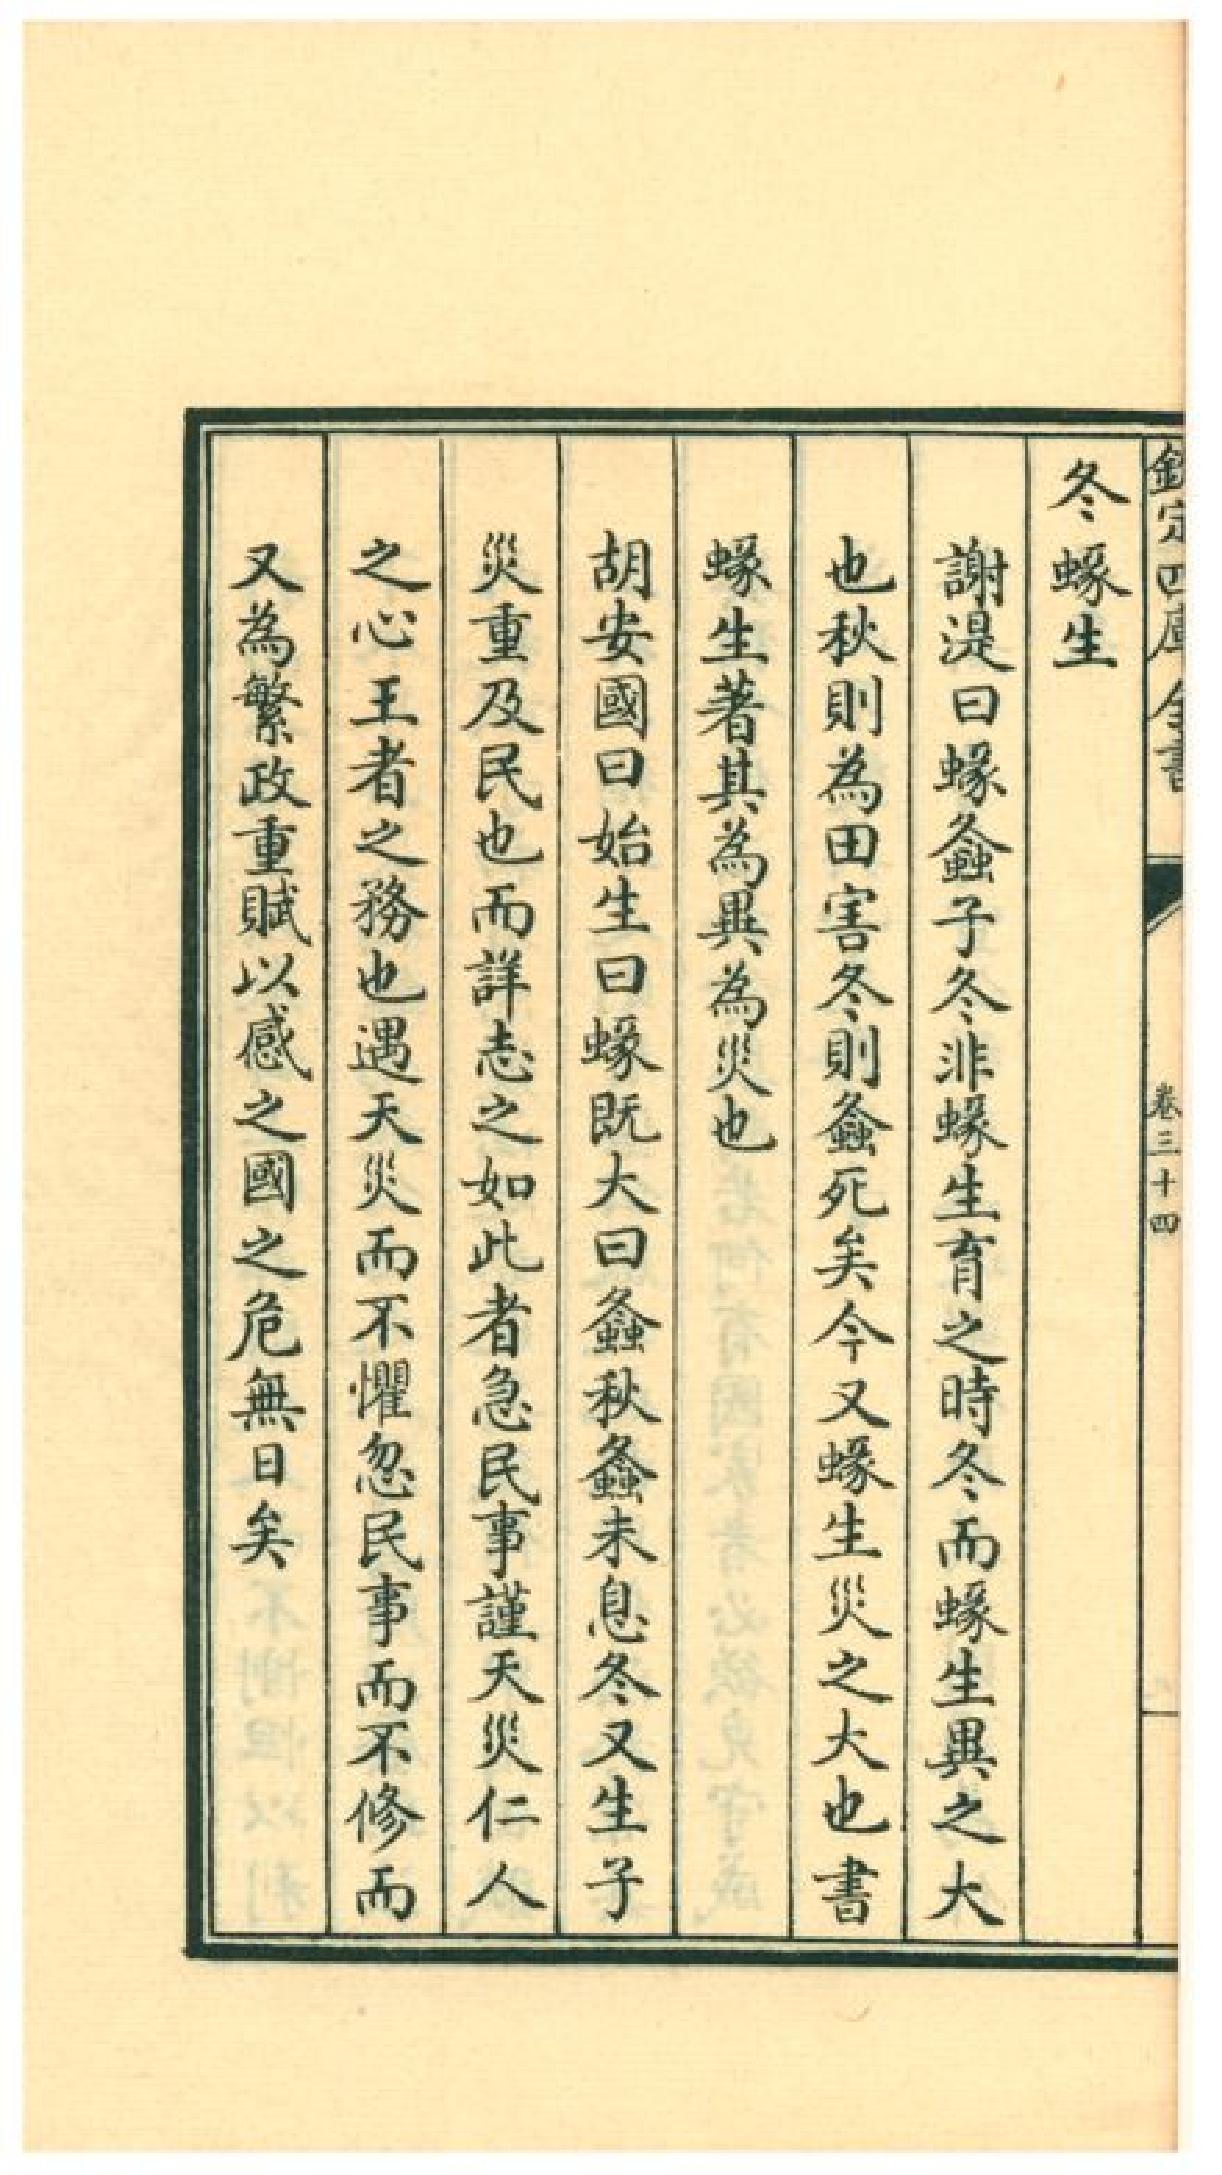 欽定四庫全書
卷三十四
冬蝝生
謝湜曰蝝螽子冬非蝝生育之時冬而蝝生異之大
也秋則為田害冬則螽死矣今又蝝生災之大也書
蝝生著其為異為災也
胡安國曰始生曰蝝既大曰螽秋螽未息冬又生子
災重及民也而詳志之如此者急民事謹天災仁人
之心王者之務也遇天災而不懼忽民事而不修而
又為繁政重賦以感之國之危無日矣